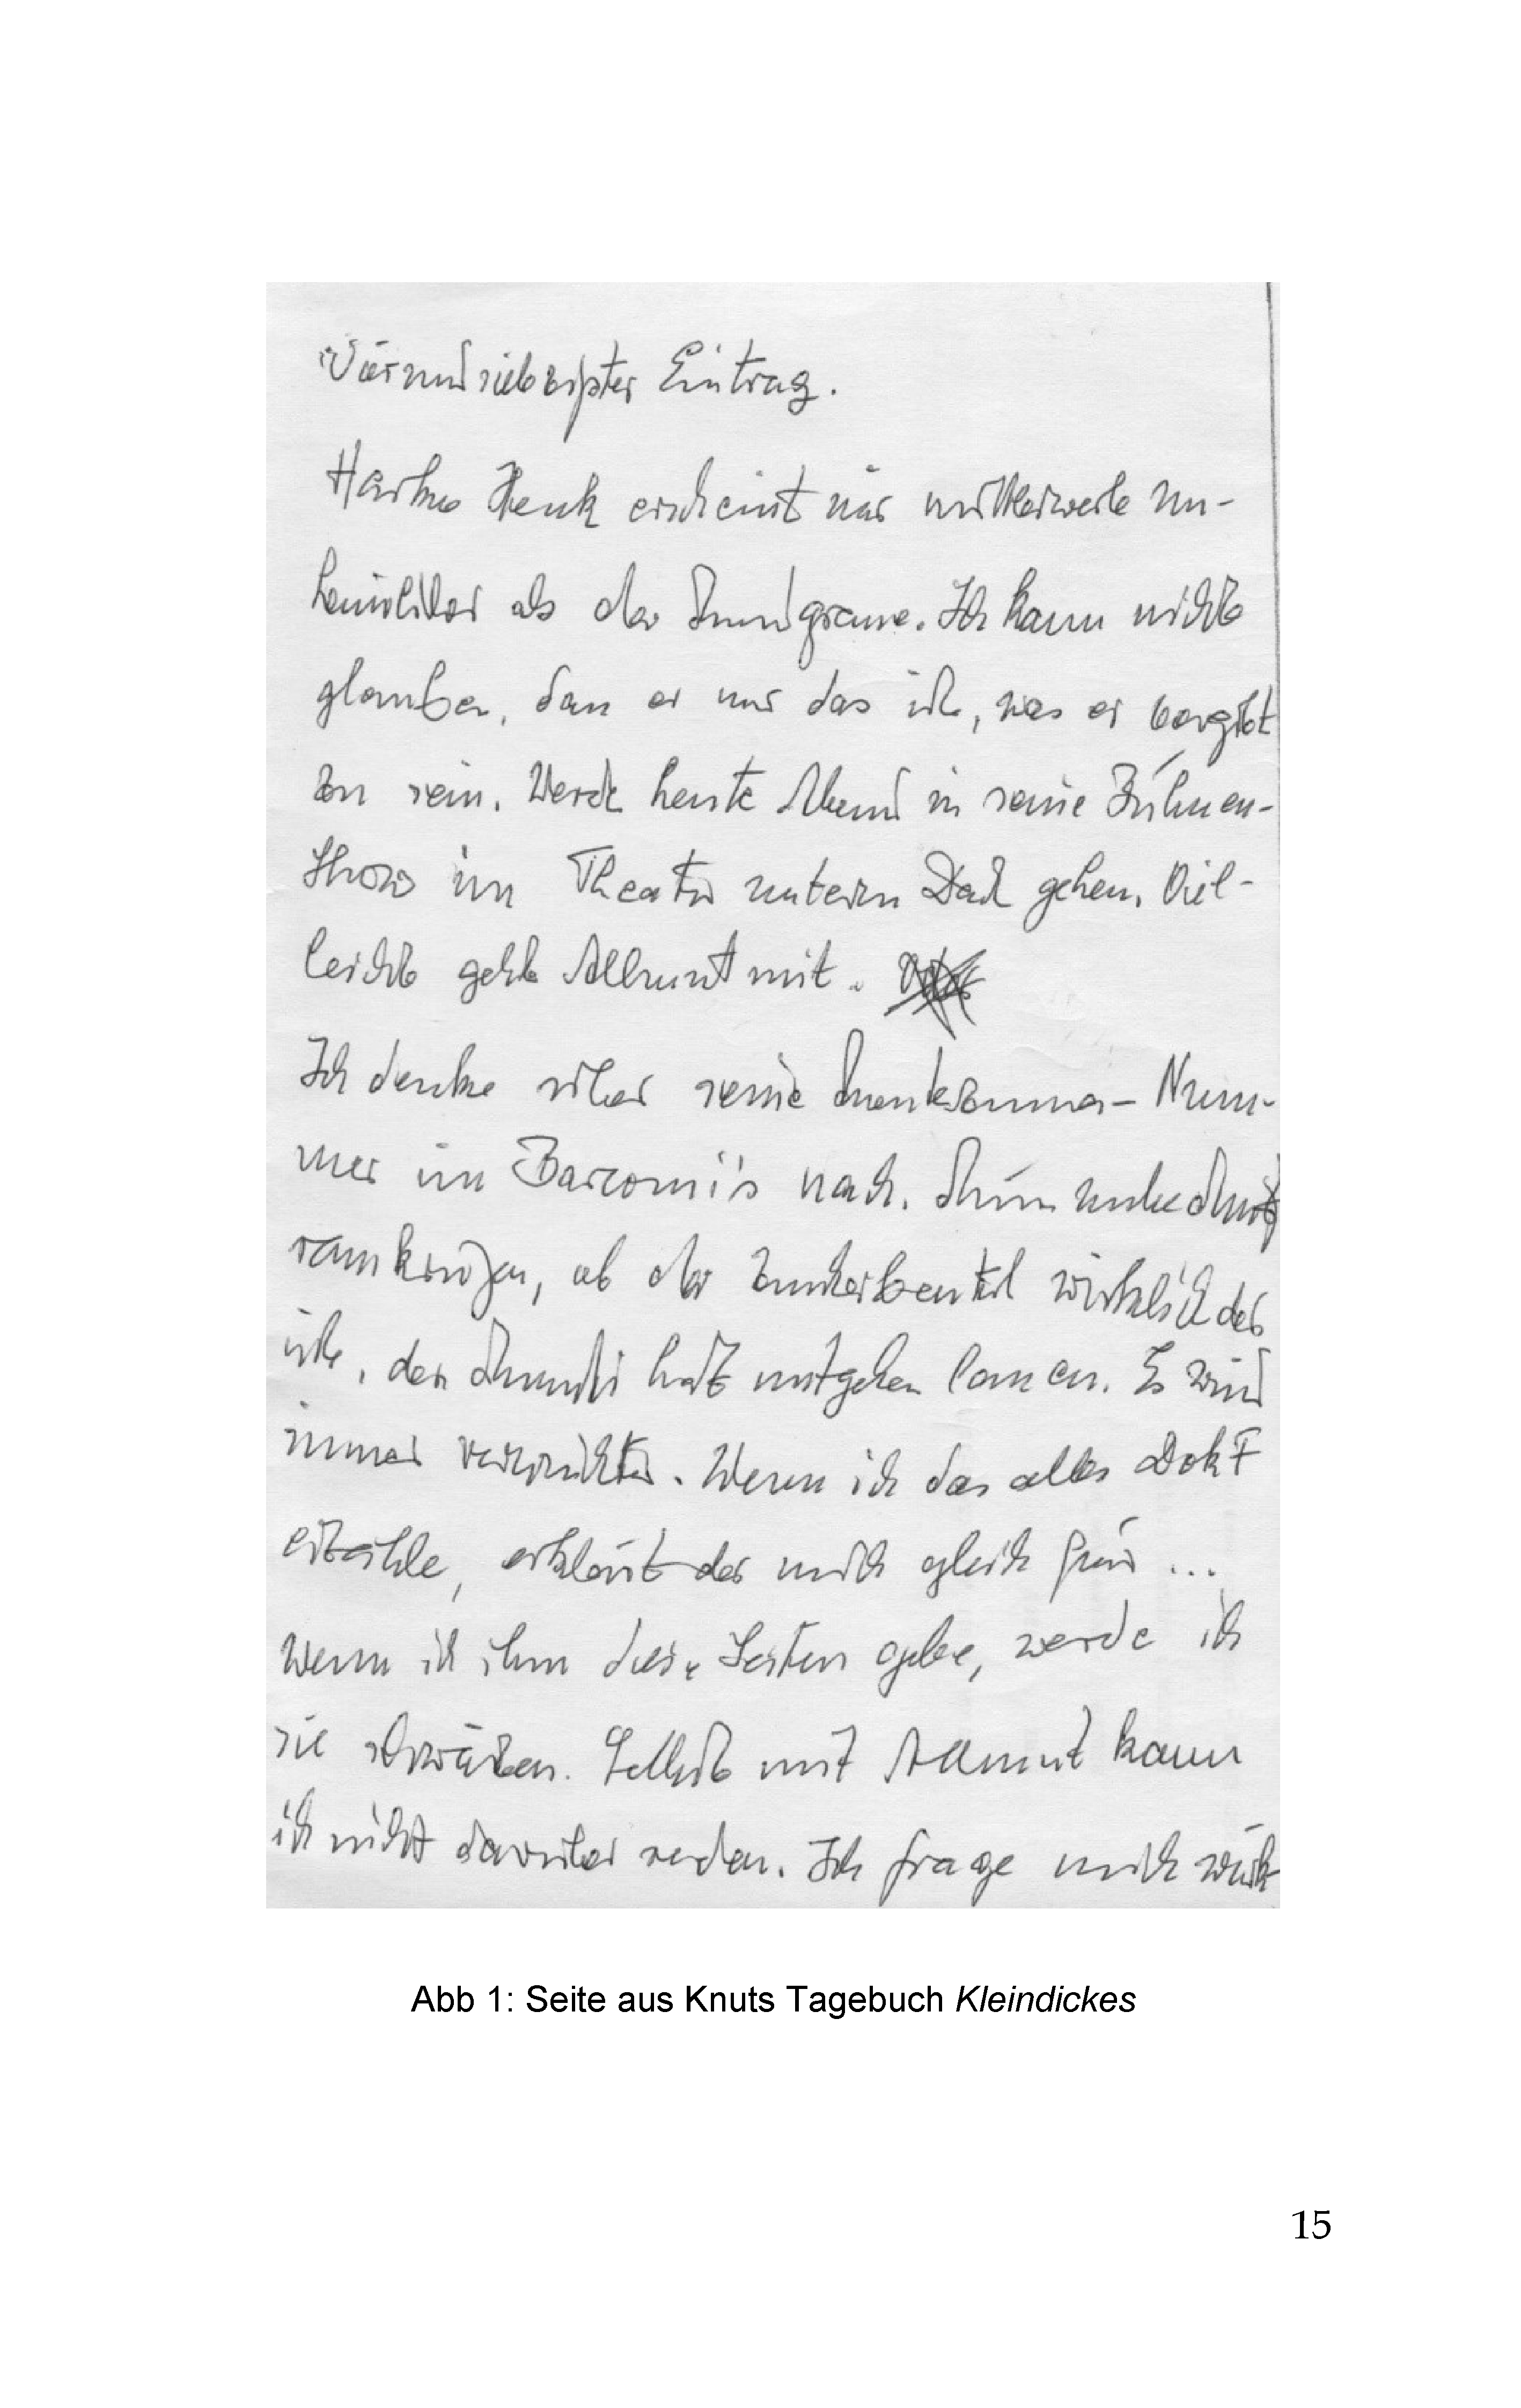 Vierundsiebzigster Eintrag.
Henk erscheint mir mittlerweile un-
heimlicher als der . Ich kann nicht
glauben, dass er nur das ist, was er vorgibt
zu sein. Werde heute Abend in seine Bühnen-
Show im Theater unterm Dach gehen. Viel-
leicht geht Allmut mit.
Ich denke über seine - Num-
mer im Barcomi's nach. Muss unbedingt
rauskriegen, ob der Zuckerbeutel wirklich der
ist, den hat mitgehen lassen. Es wird
immer verrückter. Wenn ich das alles Dok F
erzähle, erklärt der mich gleich für ...
Wenn ich ihm diese Seiten gebe, werde ich
sie schwärzen. Selbst mit Allmut kann
ich nicht darüber reden. Ich frage mich wirk-
Abb 1: Seite aus Knuts Tagebuch Kleindickes
15